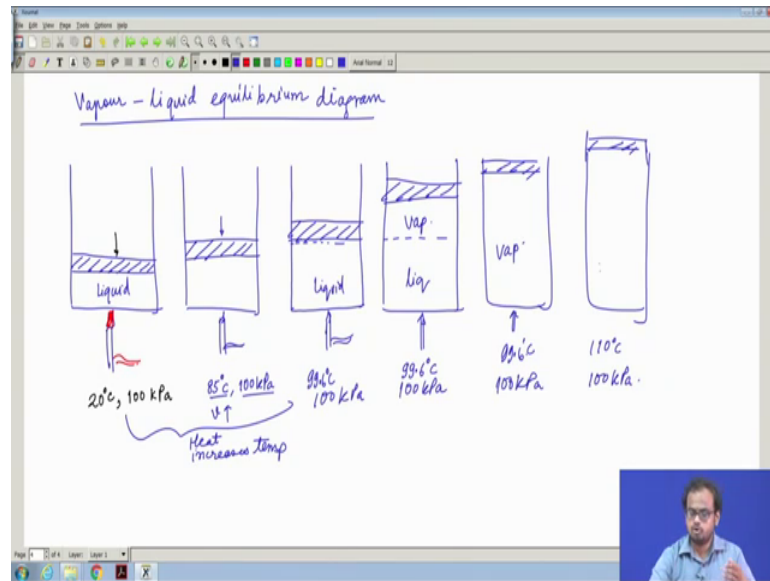 Journal
File Edit View Page Tools Options Help
Arial Normal 12
Vapour - Liquid equilibrium diagram
Liquid
Liquid
Vap.
Liq
Vap.
20°C, 100 kPa
85°C, 100 kPa
v↑
99.6°C
100 kPa
99.6°C
100 kPa
99.6°C
100 kPa
110°C
100 kPa.
Heat
increases temp
Page 4 of 4 Layer: Layer 1